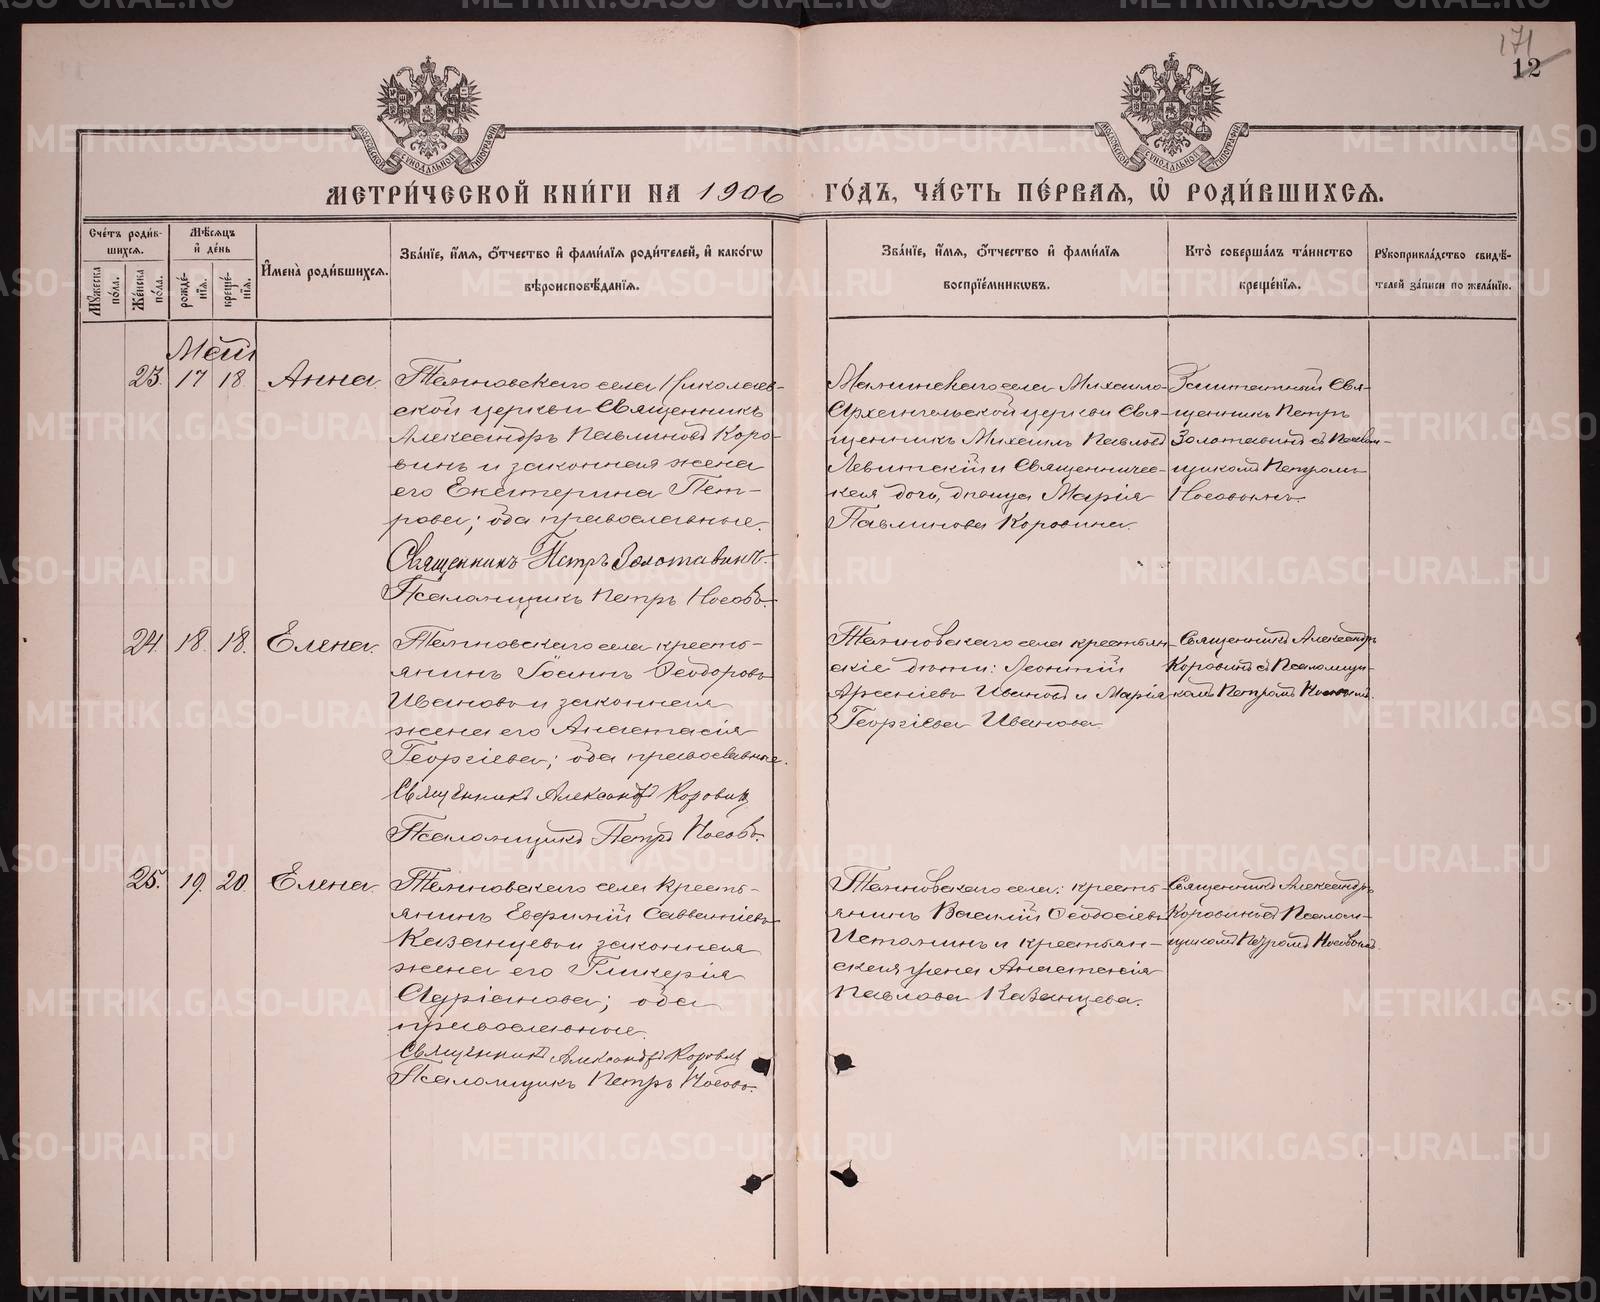 171
12
МОСКОВСКОЙ СУНОДАЛЬНОЙ ТИПОГРАФIИ
МОСКОВСКОЙ СУНОДАЛЬНОЙ ТИПОГРАФIИ
МЕТРИ́ЧЕСКОЙ КНИ́ГИ НА 1906 ГО́ДЪ, ЧА́СТЬ ПЕ́РВАЯ, Ѡ҆ РОДИ́ВШИХСЯ.
Сче́тъ роди́в-
шихся.
Му́жеска по́ла.
Же́нска по́ла.
Мѣ́сяцъ
и҆ де́нь
рожде́-
нїѧ.
креще́-
нїѧ.
И҆мена̀ роди́вшихся.
Зва́нїе, и҆́мя, ѻ҆́тчество и҆ фами́лїя роди́телей, и҆ како́гѡ
вѣроисповѣ́данїя.
Зва́нїе, и҆́мя, ѻ҆́тчество и҆ фами́лїя
воспрїе́мникѡвъ.
Кто̀ соверша́лъ та́инство
креще́нїя.
Рꙋкоприкла́дство свидѣ́-
телей за́писи по жела́нїю.
Май
23. 17 18 Анна.
Темновскаго села Николаев-
ской церкви Священникъ
Александръ Павлиновъ Коро-
винъ и законная жена
его Екатерина Пет-
рова; оба православные.
Священникъ Петръ Золотавинъ.
Псаломщикъ Петръ Носовъ.
Маминскаго села Михаило-
Архангельской церкви Свя-
щенникъ Михаилъ Павловъ
Левитскій и Священничес-
кая дочь, девица Марія
Павлинова Коровина.
Заштатный Свя-
щенникъ Петръ
Золотавинъ съ Псалом-
щикомъ Петромъ
Носовымъ.
24. 18. 18. Елена.
Темновскаго села кресть-
янинъ Іоаннъ Ѳеодоровъ
Ивановъ и законная
жена его Анастасія
Георгіева; оба православные.
Священникъ Александръ Коровинъ
Псаломщикъ Петръ Носовъ.
Темновскаго села крестьян-
скіе дѣти: Леонтій
Арсеніевъ Ивановъ и Марія
Георгіева Иванова.
Священникъ Александръ
Коровинъ съ Псаломщи-
комъ Петромъ Носовымъ.
25. 19. 20. Елена.
Темновскаго села кресть-
янинъ Евфимій Савватіевъ
Казанцевъ и законная
жена его Гликерія
Адріанова; оба
православные.
Священникъ Александръ Коровинъ
Псаломщикъ Петръ Носовъ.
Темновскаго села: кресть-
янинъ Василій Ѳеодосіевъ
Истоминъ и крестьян-
ская жена Анастасія
Павлова Казанцева.
Священникъ Александръ
Коровинъ съ Псалом-
щикомъ Петромъ Носовымъ.
METRIKI.GASO-URAL.RU